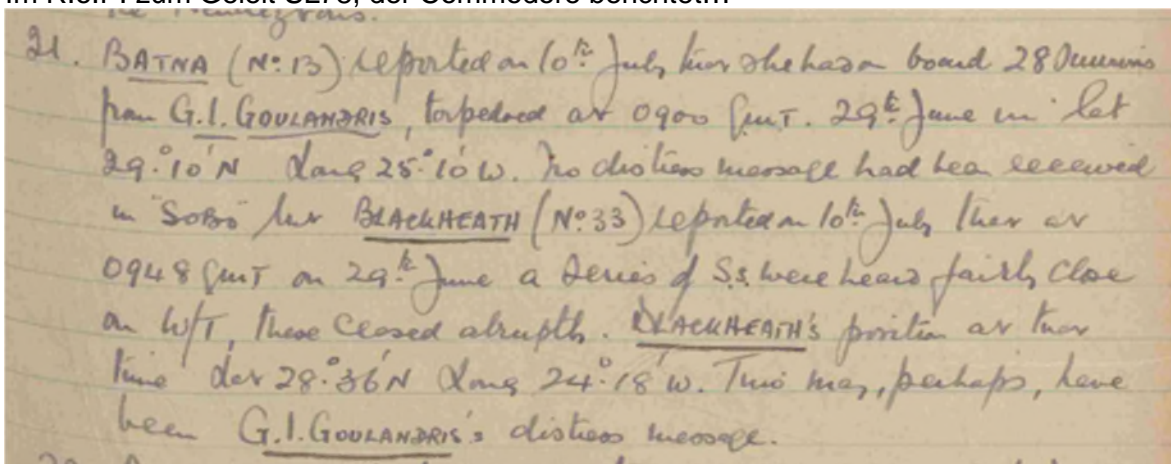 21. BATNA (No: 13) reported on 10th July that she had on board 28 survivors
from G.I. GOULANDRIS, torpedoed at 0900 GMT. 29th June in Lat
29°10'N Long 25°10'W. No distress message had been received
in "SOBO" but BLACKHEATH (No: 33) reported on 10th July that at
0948 GMT on 29th June a series of S.s. were heard fairly close
on W/T, these ceased abruptly. BLACKHEATH's position at that
time Lat 28°36'N Long 24°18'W. This may, perhaps, have
been G.I. GOULANDRIS's distress message.